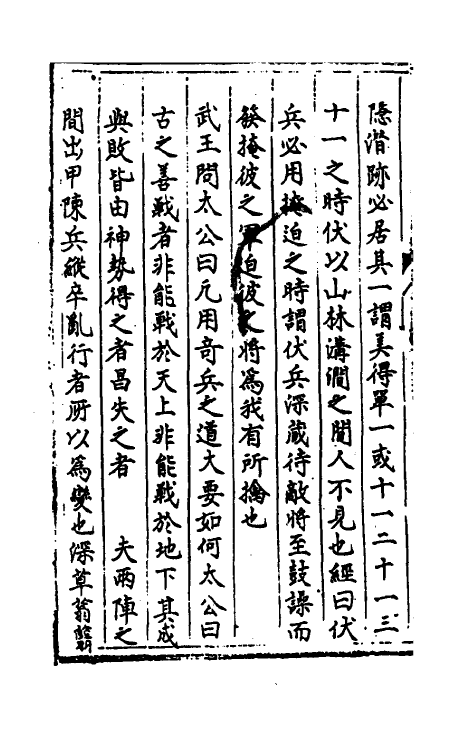 隱潛跡必居其一謂美得單一或十一二十一三
十一之時伏以山林溝澗之間人不見也經曰伏
兵必用掩迫之時謂伏兵深藏待敵將至鼓譟而
發掩彼之軍迫彼之將為我有所擒也
武王問太公曰凡用奇兵之道大要如何太公曰
古之善戰者非能戰於天上非能戰於地下其成
與敗皆由神勢得之者昌失之者 夫兩陣之
間出甲陳兵縱卒亂行者所以為變也深草蓊翳